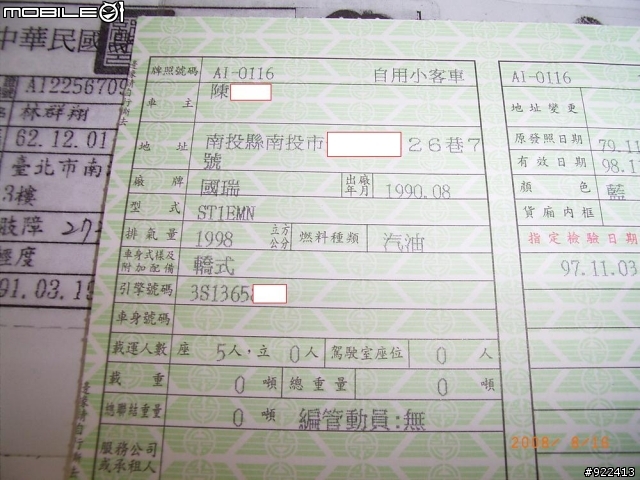 MOBILE01
中華民國
AI2256709
林群翔
62.12.01
臺北市南
3樓
肢障
輕度
91.03.19
牌照號碼 AI-0116 自用小客車
車主 陳
地址 南投縣南投市 26巷7
號
廠牌 國瑞 出廠年月 1990.08
型式 ST1EMN
排氣量 1998 立方公分 燃料種類 汽油
車身式樣及附加配備 轎式
引擎號碼 3S1365
車身號碼
載運人數 座 5人,立 0人 駕駛室座位 0 人
載重 0 噸 總重量 0 噸
總聯結重量 0 噸 編管動員:無
服務公司
或承租人
AI-0116
地址變更
原發照日期 79.11
有效日期 98.1
顏色 藍
貨廂內框
指定檢驗日期
97.11.03
#922413